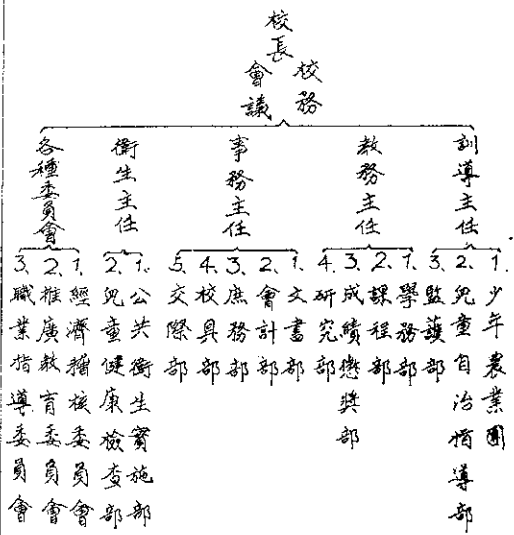 校長
校務
會議
訓導主任
1. 少年農業團
2. 兒童自治指導部
3. 監護部
教務主任
1. 學務部
2. 課程部
3. 成績懲獎部
4. 研究部
事務主任
1. 文書部
2. 會計部
3. 庶務部
4. 校具部
5. 交際部
衛生主任
1. 公共衛生實施部
2. 兒童健康檢查部
各種委員會
1. 經濟稽核委員會
2. 推廣教育委員會
3. 職業指導委員會